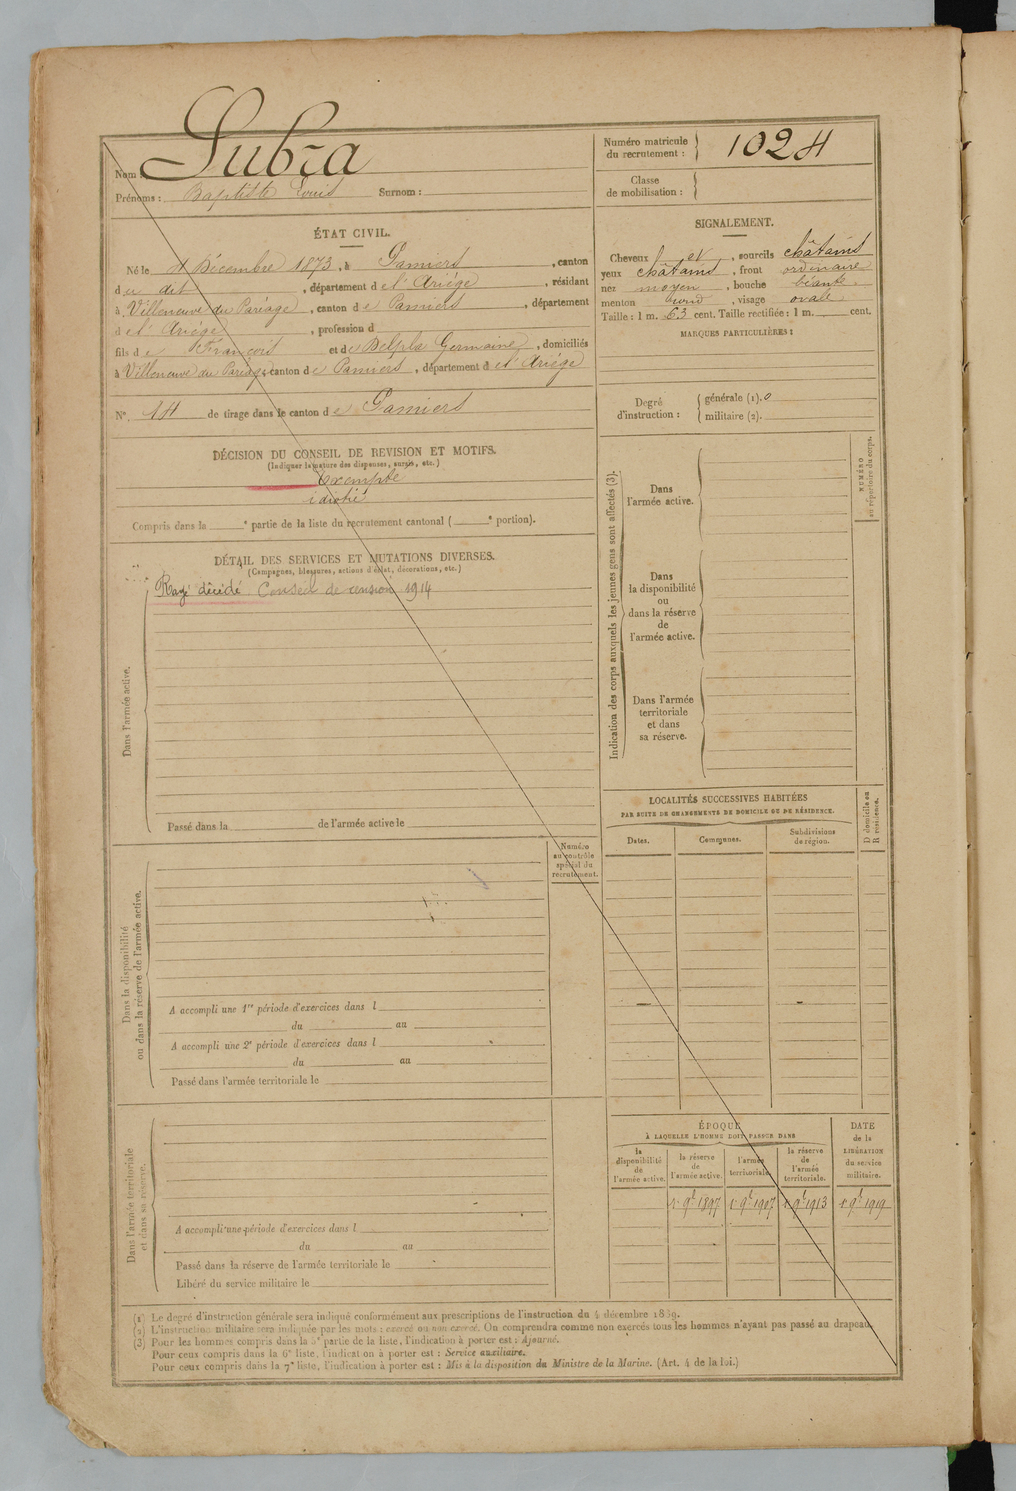 Nom : Subra
Prénoms : Baptiste Louis Surnom :
Numéro matricule du recrutement : 1024
Classe de mobilisation :
ÉTAT CIVIL.
Né le 4 Décembre 1873, à Pamiers, canton
du dit, département de l'Ariége, résidant
à Villeneuve du Paréage, canton de Pamiers, département
de l'Ariége, profession d
fils de François et de Delpla Germaine, domiciliés
à Villeneuve du Paréage, canton de Pamiers, département de l'Ariége
N° 14 de tirage dans le canton de Pamiers
SIGNALEMENT.
Cheveux et, sourcils châtains
yeux châtains, front ordinaire
nez moyen, bouche béante.
menton rond, visage ovale.
Taille : 1 m. 63 cent. Taille rectifiée : 1 m. cent.
MARQUES PARTICULIÈRES :
Degré d'instruction : générale (1). 0
militaire (2).
DÉCISION DU CONSEIL DE REVISION ET MOTIFS.
(Indiquer la nature des dispenses, sursis, etc.)
Exempté
idiotie
Compris dans la e partie de la liste du recrutement cantonal ( e portion).
DÉTAIL DES SERVICES ET MUTATIONS DIVERSES.
(Campagnes, blessures, actions d'éclat, décorations, etc.)
Rayé décédé. Conseil de révision 1914
Dans l'armée active.
Passé dans la de l'armée active le
Numéro
au contrôle
spécial du
recrutement.
Dans la disponibilité
ou dans la réserve de l'armée active.
A accompli une 1re période d'exercices dans l
du au
A accompli une 2e période d'exercices dans l
du au
Passé dans l'armée territoriale le
Dans l'armée territoriale
et dans sa réserve.
A accompli une période d'exercices dans l
du au
Passé dans la réserve de l'armée territoriale le
Libéré du service militaire le
Indication des corps auxquels les jeunes gens sont affectés (3).
NUMÉRO
au répertoire du corps.
Dans
l'armée active.
Dans
la disponibilité
ou
dans la réserve
de
l'armée active.
Dans l'armée
territoriale
et dans
sa réserve.
LOCALITÉS SUCCESSIVES HABITÉES
PAR SUITE DE CHANGEMENTS DE DOMICILE OU DE RÉSIDENCE.
Dates.
Communes.
Subdivisions
de région.
D domicile ou
R résidence.
ÉPOQUE
À LAQUELLE L'HOMME DOIT PASSER DANS
la
disponibilité
de
l'armée active.
la réserve
de
l'armée active.
l'armée
territoriale.
la réserve
de
l'armée
territoriale.
DATE
de la
LIBÉRATION
du service
militaire.
1er 9bre 1897 1er 9bre 1907 1er 9bre 1913 1er 9bre 1919
(1) Le degré d'instruction générale sera indiqué conformément aux prescriptions de l'instruction du 4 décembre 1889.
(2) L'instruction militaire sera indiquée par les mots : exercé ou non exercé. On comprendra comme non exercés tous les hommes n'ayant pas passé au drapeau.
(3) Pour les hommes compris dans la 5e partie de la liste, l'indication à porter est : Ajourné.
Pour ceux compris dans la 6e liste, l'indication à porter est : Service auxiliaire.
Pour ceux compris dans la 7e liste, l'indication à porter est : Mis à la disposition du Ministre de la Marine. (Art. 4 de la loi.)